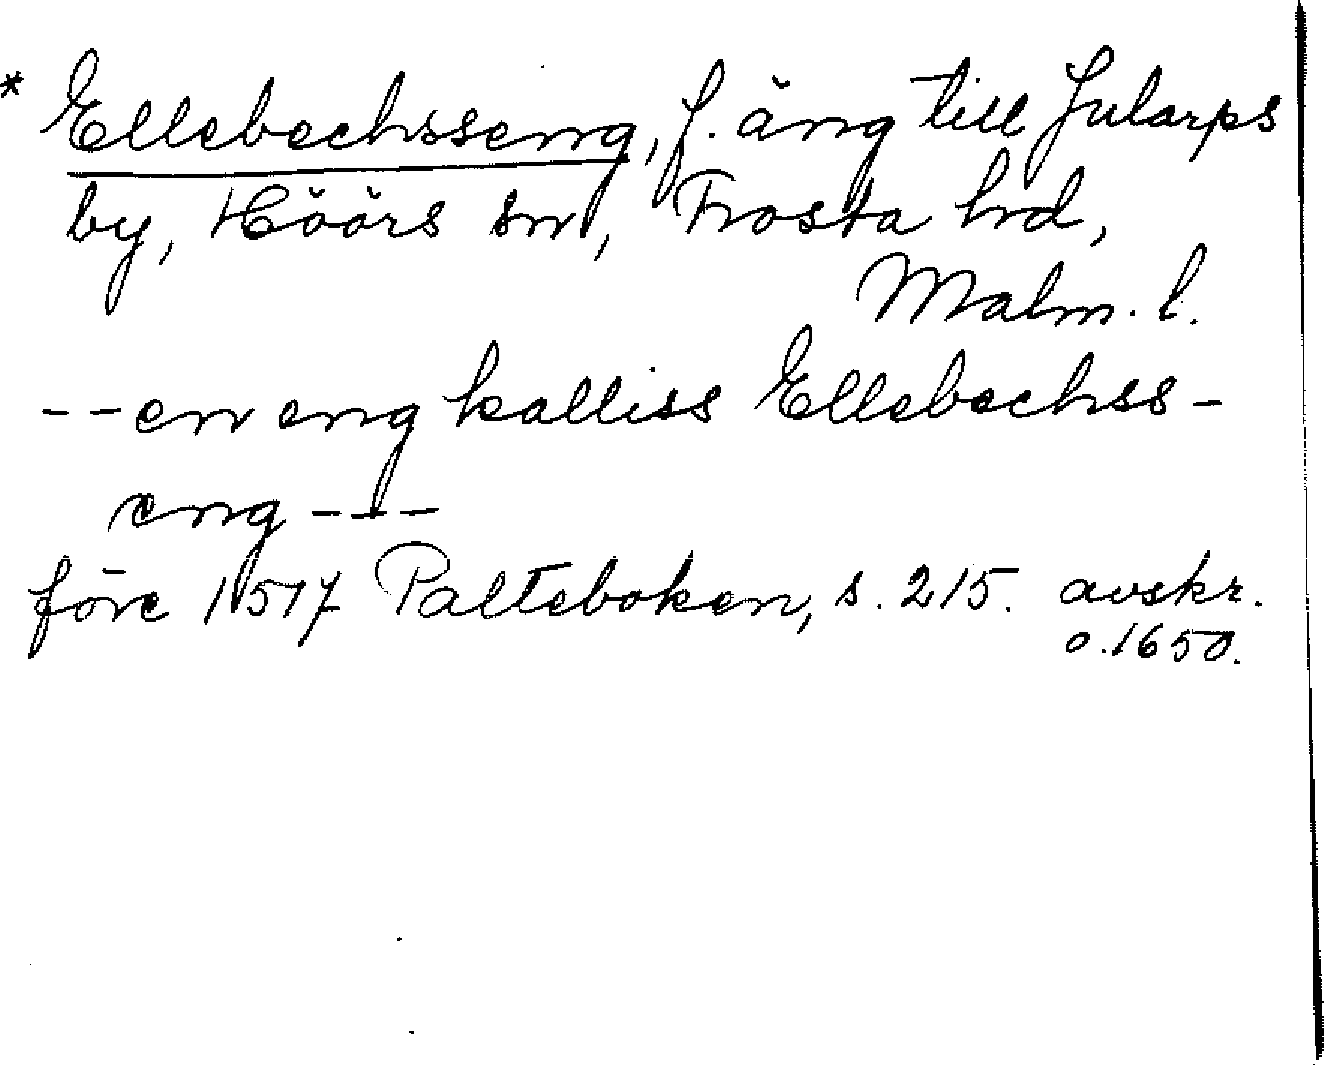 * Ellebechsseng, f. äng till Jularps
by, Höörs sn, Frosta hrd,
Malm. l.
-- en eng kalliss Ellebechss-
eng ---
före 1517 Palteboken, s. 215. avskr.
o. 1650.